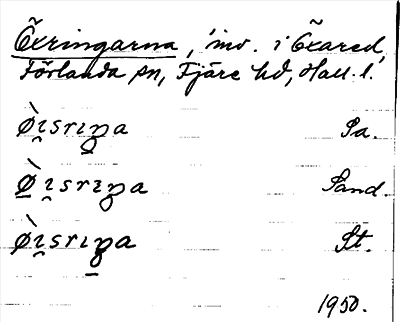 Öxringarna, inv. i Öxared,
Förlanda sn, Fjäre hd, Hall. l.
Øi̯sriŋa Sa.
Øi̯sriŋa Sand.
Øi̯sriŋa St.
1950.